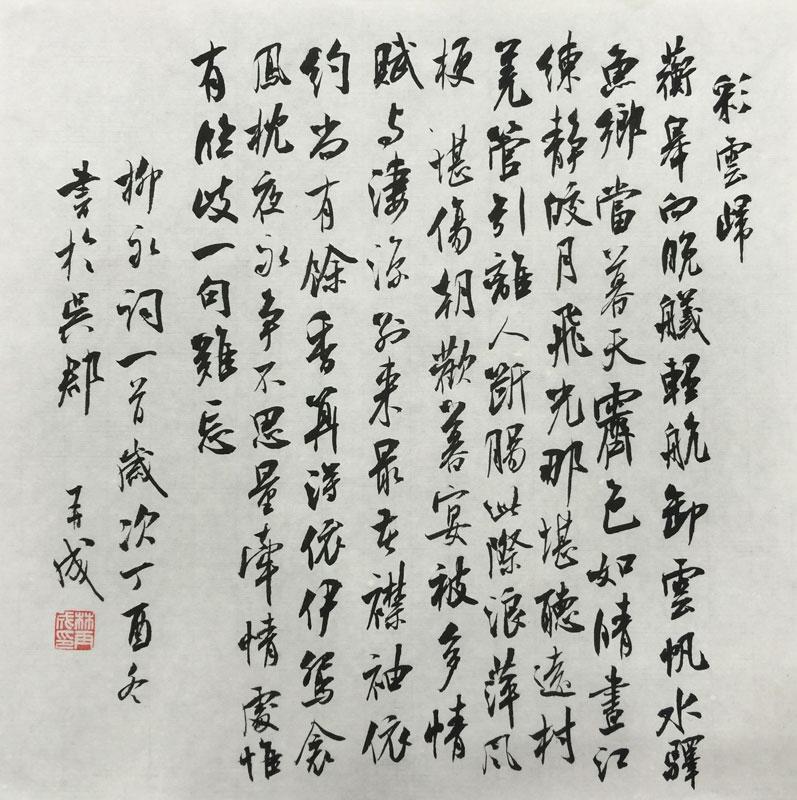 彩雲歸
蘅皋向晚艤輕航卸雲帆水驛
魚鄉當暮天霽色如晴晝江
練靜皎月飛光那堪聽遠村
羌管引離人斷腸此際浪萍風
梗堪傷朝歡暮宴被多情
賦與淒涼別來最在襟袖依
約尚有餘香算得依伊鴛衾
鳳枕夜永爭不思量牽情處惟
有臨歧一句難忘
柳永詞一首歲次丁酉冬
書於吳郡 再成
林再成印